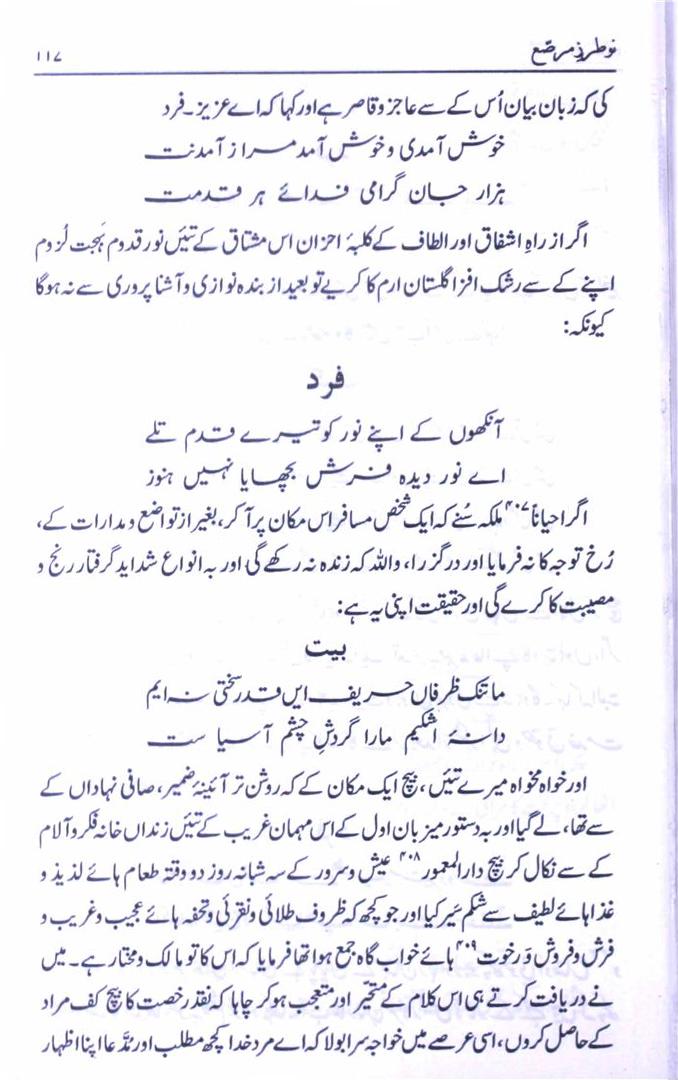 نو طرزِ مرصّع ۱۱۷
کی کہ زبان بیان اُس کے سے عاجز و قاصر ہے اور کہا کہ اے عزیز۔ فرد
خوش آمدی و خوش آمد مرا ز آمدنت
ہزار جان گرامی فدائے ہر قدمت
اگر از راہِ اشفاق اور الطاف کے کلبۂ احزان اس مشتاق کے تئیں نور قدوم بَہجت لُزوم
اپنے کے سے رشک افزا گلستان ارم کا کریے تو بعید از بندہ نوازی و آشنا پروری سے نہ ہوگا
کیونکہ:
فرد
آنکھوں کے اپنے نور کو تیرے قدم تلے
اے نور دیدہ فرش بچھایا نہیں ہنوز
اگر احیاناً ۴۰۷ ملکہ سُنے کہ ایک شخص مسافر اس مکان پر آ کر، بغیر از تواضع و مدارات کے،
رُخ توجہ کا نہ فرمایا اور درگزرا، واللہ کہ زندہ نہ رکھے گی اور بہ انواع شداید گرفتار رنج و
مصیبت کا کرے گی اور حقیقت اپنی یہ ہے:
بیت
ما تنک ظرفاں حریف ایں قدر سختی نہ ایم
دانۂ اشکیم مارا گردشِ چشم آسیا ست
اور خواہ مخواہ میرے تئیں، بیچ ایک مکان کے کہ روشن تر آئینۂ ضمیر، صافی نہاداں کے
سے تھا، لے گیا اور بہ دستور میزبان اول کے اس مہمان غریب کے تئیں زنداں خانہ فکر و آلام
کے سے نکال کر بیچ دار المعمور ۴۰۸ عیش و سرور کے سہ شبانہ روز دو وقتہ طعام ہائے لذیذ و
غذا ہائے لطیف سے شکم سَیر کیا اور جو کچھ کہ ظروف طلائی و نقرئی و تحفہ ہائے عجیب و غریب و
فرش و فروش وَ رخوت ۴۰۹ ہائے خواب گاہ جمع ہوا تھا فرمایا کہ اس کا تو مالک و مختار ہے۔ میں
نے دریافت کرتے ہی اس کلام کے متحیر اور متعجب ہو کر چاہا کہ نقد رخصت کا بیچ کف مراد
کے حاصل کروں، اسی عرصے میں خواجہ سرا بولا کہ اے مرد خدا کچھ مطلب اور مُدَّعا اپنا اظہار